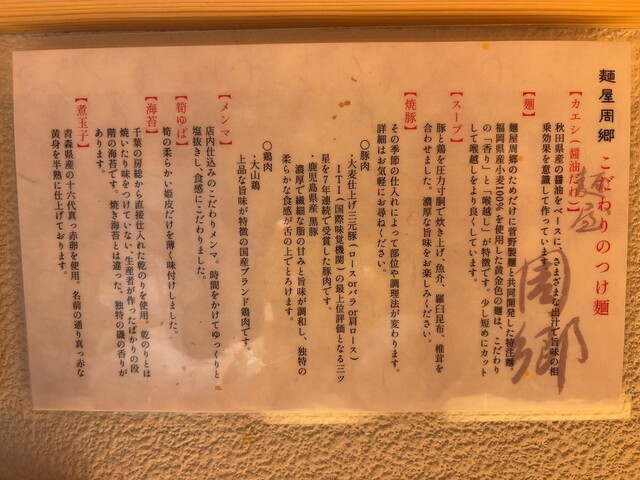 麺屋周郷 こだわりのつけ麺
【カエシ（醤油だれ）】
秋田県産の醤油をベースに、さまざまな出汁で旨味の相
乗効果を意識して作っています。
【麺】
麺屋周郷のためだけに菅野製麺と共同開発した特注麺。
福岡県産小麦100％を使用した黄金色の麺は、こだわり
の「香り」と「喉越し」が特徴です。少し短めにカット
して喉越しをより良くしています。
【スープ】
豚と鶏を圧力寸胴で炊き上げ、魚介、羅臼昆布、椎茸を
合わせました。濃厚な旨味をお楽しみください。
【焼豚】
その季節の仕入れによって部位や調理法が変わります。
詳細はお気軽にお尋ねください。
〇豚肉
・大麦仕上げ三元豚（ロースorバラor肩ロース）
ITI（国際味覚機関）の最上位評価となる三ツ
星を7年連続で受賞した豚肉です。
・鹿児島県産 黒豚
濃厚で繊細な脂の甘みと旨味が調和し、独特の
柔らかな食感が舌の上でとろけます。
〇鶏肉
・大山鶏
上品な旨味が特徴の国産ブランド鶏肉です。
【メンマ】
店内仕込みのこだわりメンマ。時間をかけてゆっくりと
塩抜きし、食感にこだわりました。
【筍ゆば】
筍の柔らかい姫皮だけを薄く味付けしました。
【海苔】
千葉の房総から直接仕入れた乾のりを使用。乾のりとは
焼いたり味をつけていない、生産者が作ったばかりの段
階の海苔です。焼き海苔とは違った、独特の磯の香りが
あります。
【煮玉子】
青森県産の十六代真っ赤卵を使用。名前の通り真っ赤な
黄身を半熟に仕上げております。
麺屋
周郷